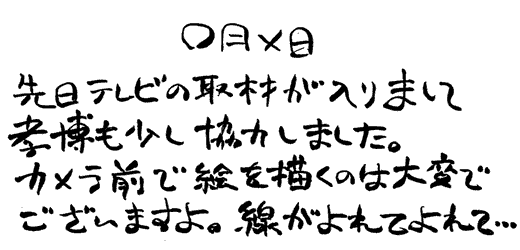 〇月×日
先日テレビの取材が入りまして
孝博も少し協力しました。
カメラ前で絵を描くのは大変で
ございますよ。線がよれてよれて…